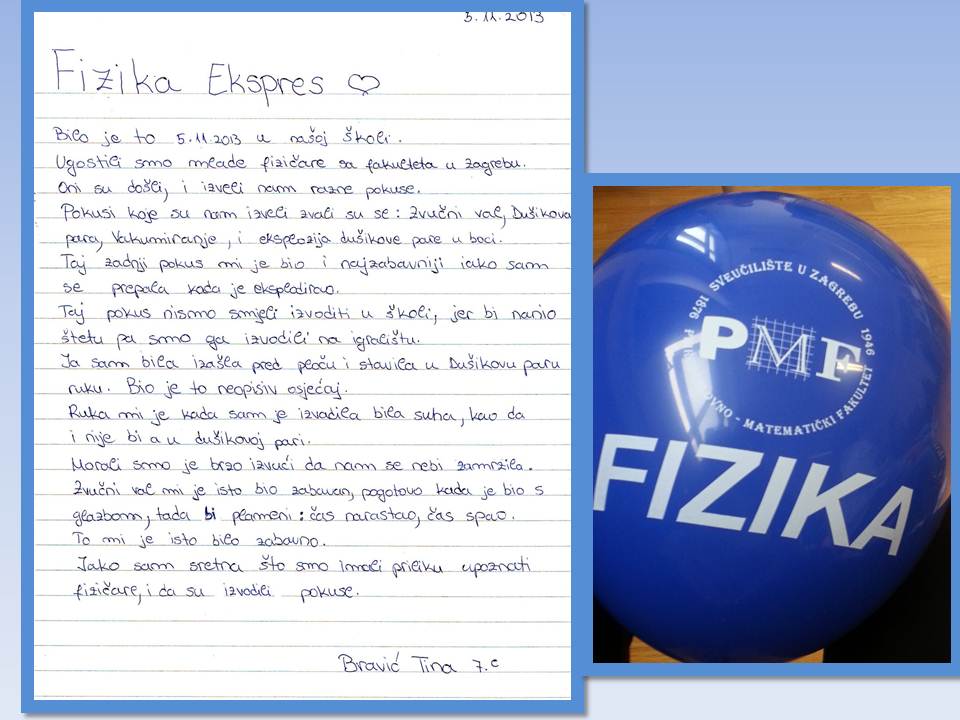 5.11.2013
Fizika Ekspres ♡
Bilo je to 5.11.2013 u našoj školi.
Ugostili smo mlade fizičare sa fakulteta u Zagrebu.
Oni su došli, i izveli nam razne pokuse.
Pokusi koje su nam izveli zvali su se: Zvučni val, Dušikova
para, Vakumiranje, i eksplozija dušikove pare u boci.
Taj zadnji pokus mi je bio i najzabavniji iako sam
se prepala kada je eksplodirao.
Taj pokus nismo smjeli izvoditi u školi, jer bi nanio
štetu pa smo ga izvodili na igralištu.
Ja sam bila izašla pred ploču i stavila u Dušikovu paru
ruku. Bio je to neopisiv osjećaj.
Ruka mi je kada sam je izvadila bila suha, kao da
i nije bi a u dušikovoj pari.
Morali smo je brzo izvući da nam se nebi zamrzila.
Zvučni val mi je isto bio zabavan, pogotovo kada je bio s
glazbom, tada bi plameni: čas narastao, čas spao.
To mi je isto bilo zabavno.
Jako sam sretna što smo imali priliku upoznati
fizičare, i da su izvodili pokuse.
Bravić Tina 7.c
SVEUČILIŠTE U ZAGREBU 1946
1876
PMF
MATEMATIČKI FAKULTET
FIZIKA